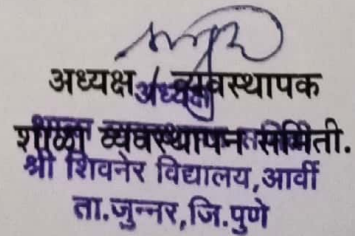 अध्यक्ष / व्यवस्थापक
अध्यक्ष
शाळा व्यवस्थापन समिती.
श्री शिवनेर विद्यालय,आर्वी
ता.जुन्नर,जि.पुणे